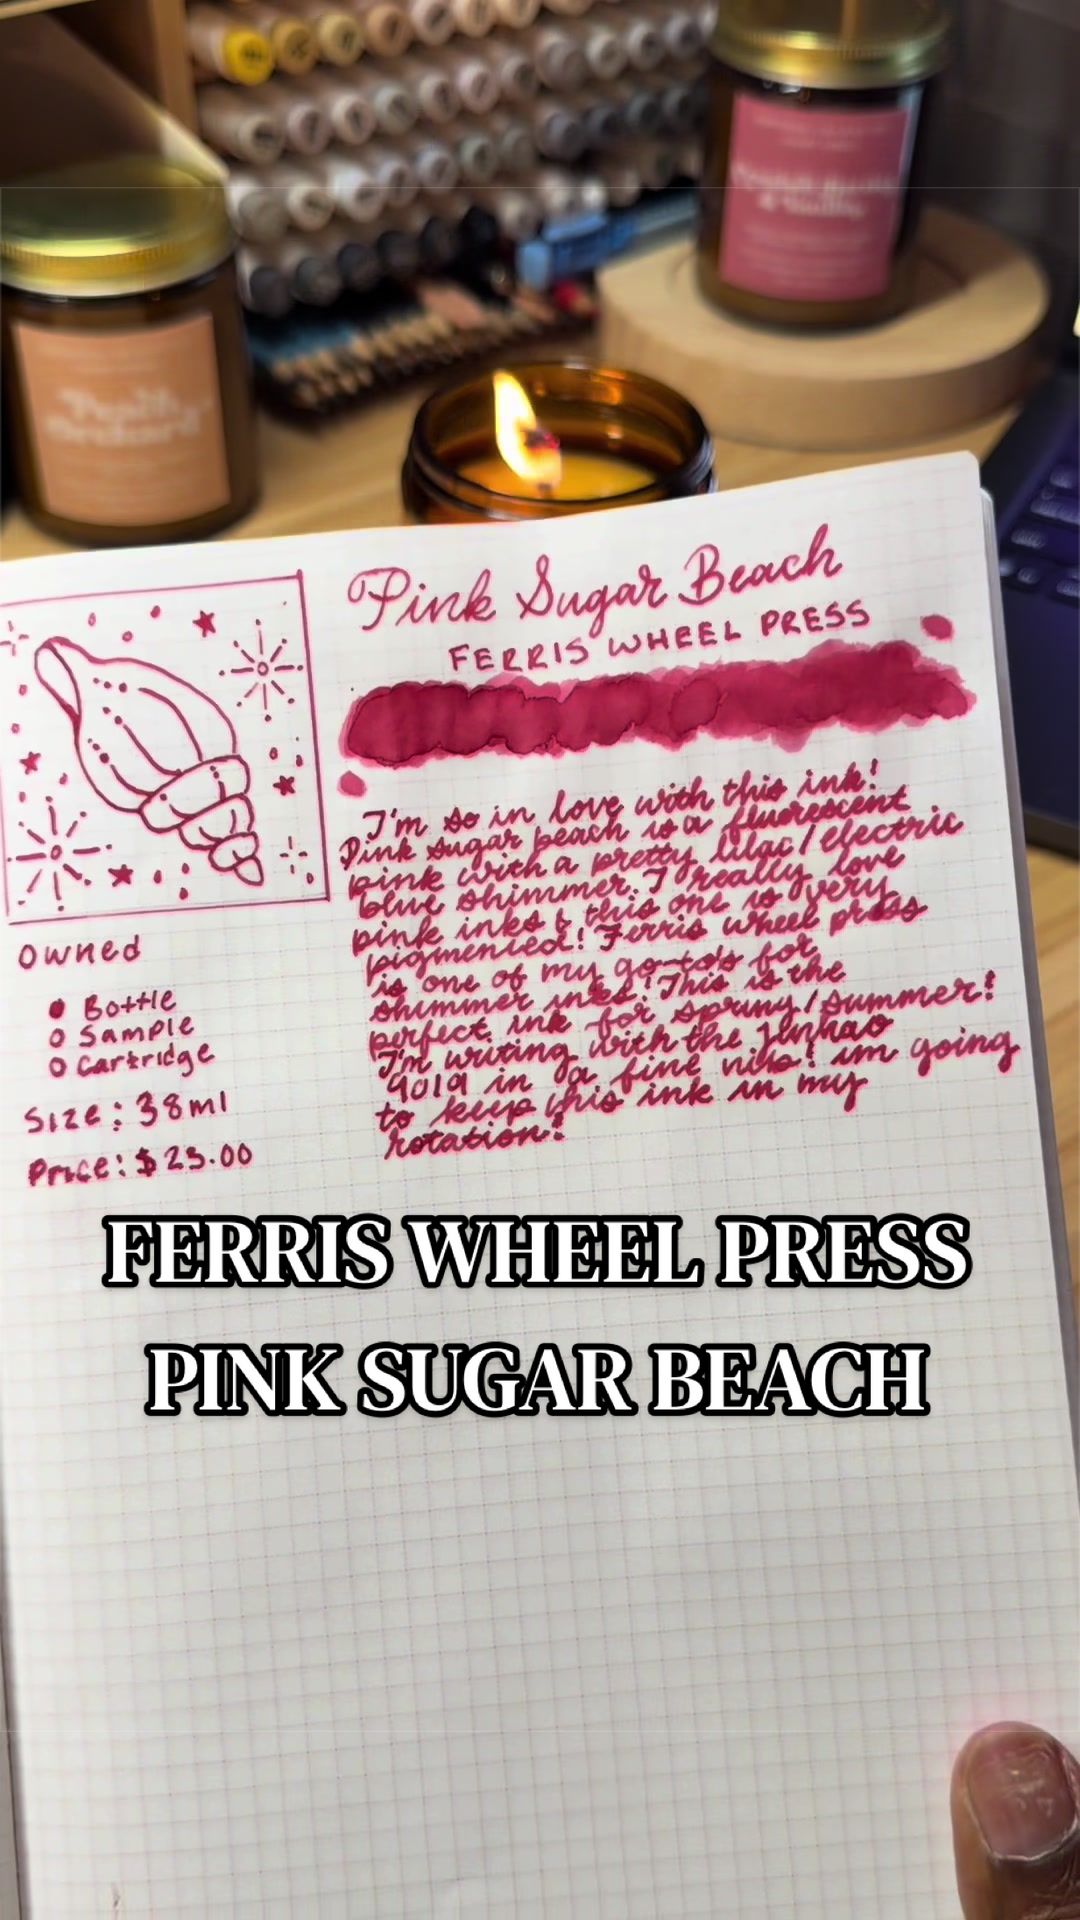 Peach
Orchard
Pink Sugar Beach
FERRIS WHEEL PRESS
I'm so in love with this ink!
Pink sugar beach is a fluorescent
pink with a pretty lilac/electric
blue shimmer. I really love
pink inks & this one is very
pigmented! Ferris wheel press
is one of my go-to's for
shimmer inks! This is the
perfect ink for Spring/Summer!
I'm writing with the Jinhao
9019 in a fine nib! im going
to keep this ink in my
rotation!
Owned
Bottle
Sample
Cartridge
Size: 38ml
Price: $23.00
FERRIS WHEEL PRESS
PINK SUGAR BEACH